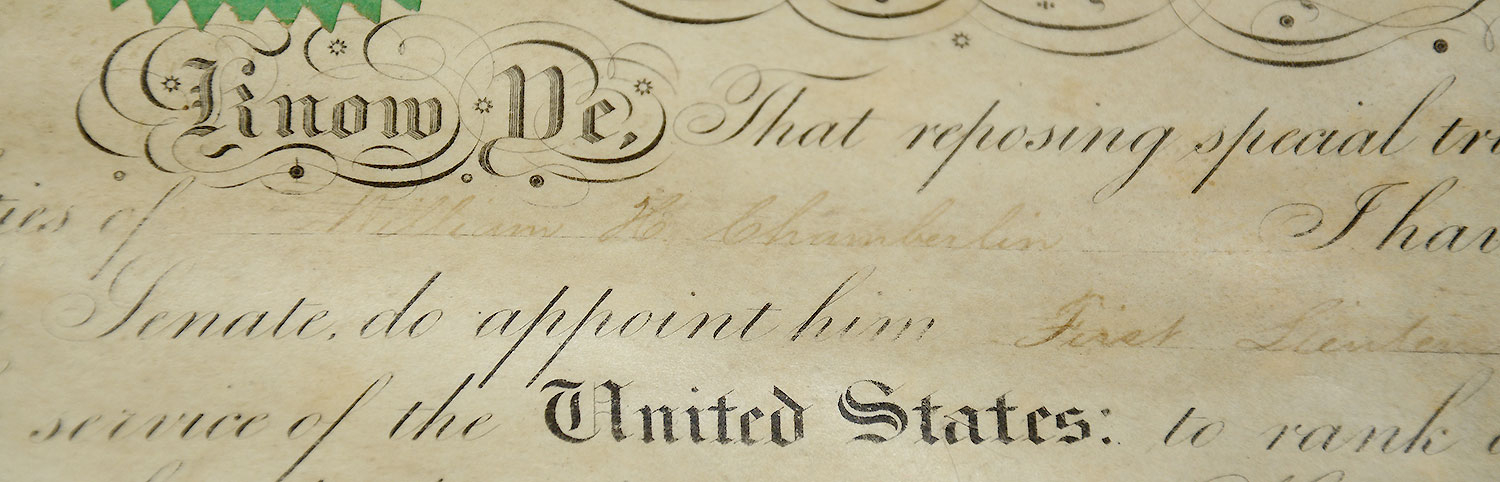 Know Ye, That reposing special
of William H. Chamberlin I
Senate, do appoint him First
service of the United States: to rank